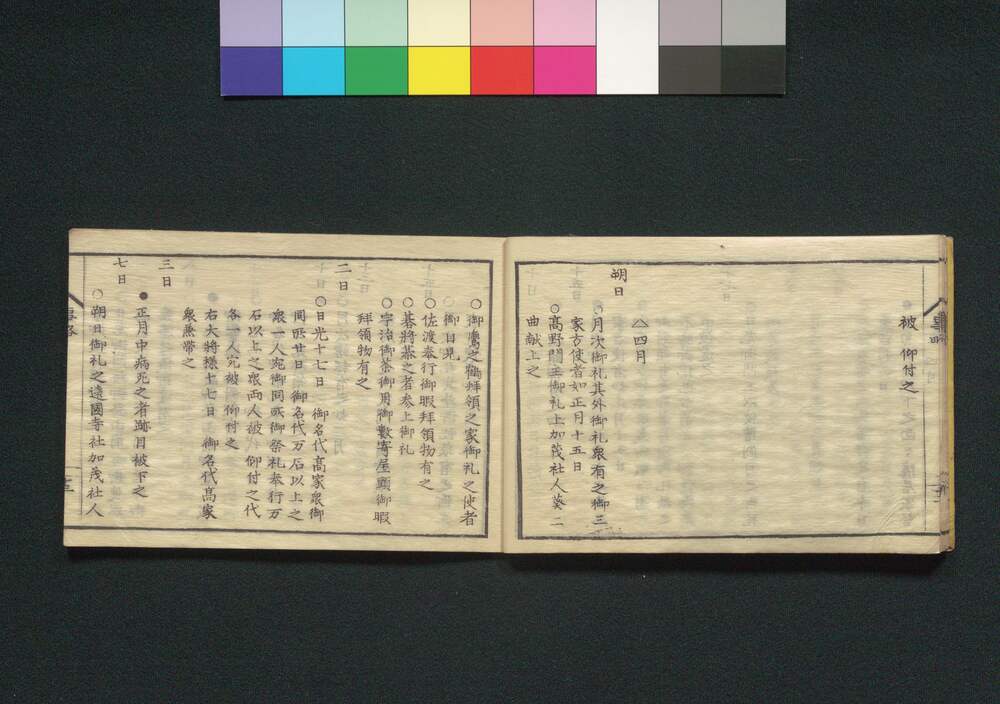 被 仰付之
△四月
朔日
○月次御礼其外御礼衆有之御三
家方使者如正月十五日
○高野門主御礼上加茂社人葵二
曲献上之
○御鷹之鶴拝領之家御礼之使者
御目見
○佐渡奉行御暇拝領物有之
○碁將棊之者参上御礼
○宇治御茶御用御數寄屋頭御暇
拝領物有之
二日
○日光十七日 御名代髙家衆御
同所廿日 御名代万石以上之
衆一人宛御同所御祭礼奉行万
石以上之衆両人被 仰付之代
各一人宛被 仰付之
右大將様十七日 御名代髙家
衆兼帯之
三日
●正月中病死之者跡目被下之
七日
○朔日御礼之遠國寺社加茂社人